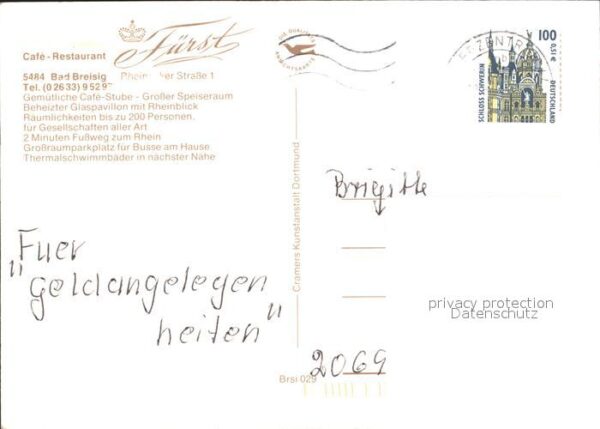 Café - Restaurant Fürst
5484 Bad Breisig
Straße 1
Tel. (0 26 33) 9 52 9
Gemütliche Café-Stube - Großer Speiseraum
Beheizter Glaspavillon mit Rheinblick
Räumlichkeiten bis zu 200 Personen,
für Gesellschaften aller Art
2 Minuten Fußweg zum Rhein
Großraumparkplatz für Busse am Hause
Thermalschwimmbäder in nächster Nähe
"Fuer
geldangelegen
heiten"
Cramers Kunstanstalt Dortmund
Brsi 029
DIE QUALITÄTS
ANSICHTSKARTE
100
0,51 €
SCHLOSS SCHWERIN
DEUTSCHLAND
Brigitte
privacy protection
Datenschutz
2069